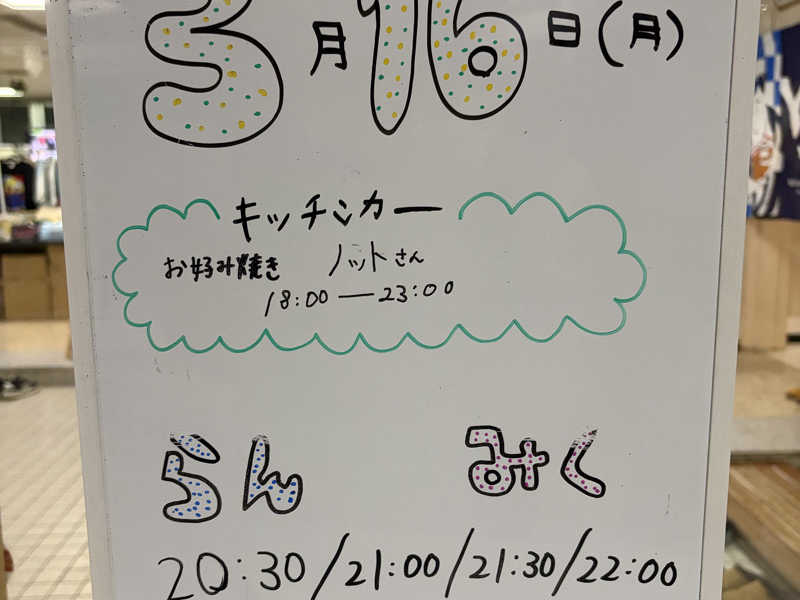 3月16日(月)
キッチンカー
お好み焼き ノットさん
18:00ー23:00
らん みく
20:30/21:00/21:30/22:00